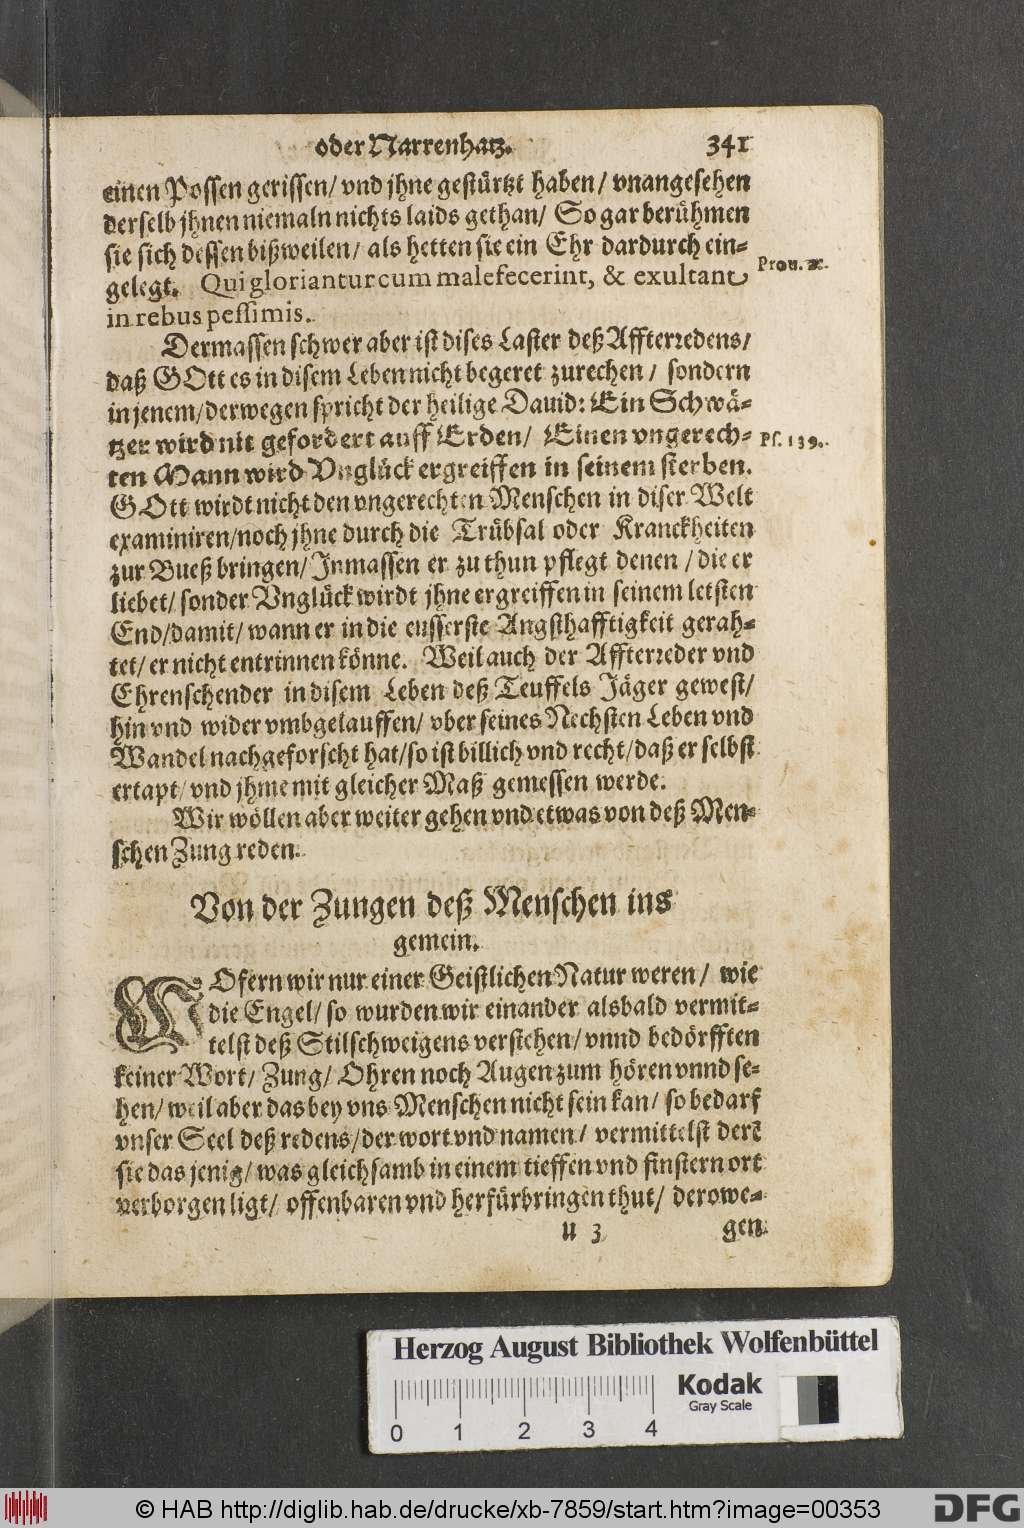 oder Narrenhatz. 341
einen Possen gerissen/ vnd jhne gestürtzt haben/ vnangesehen
derselb jhnen niemaln nichts laids gethan/ So gar berühmen
sie sich dessen bißweilen/ als hetten sie ein Ehr dardurch ein-
gelegt. Qui gloriantur cum malefecerint, & exultant
Prou. 2.
in rebus pessimis.
Dermassen schwer aber ist dises Laster deß Affterredens/
daß GOtt es in disem Leben nicht begeret zurechen/ sondern
in jenem/ derwegen spricht der heilige Dauid: Ein Schwä-
tzer wird nit gefordert auff Erden/ Einen vngerech-
Ps. 139.
ten Mann wird Vnglück ergreiffen in seinem sterben.
GOtt wirdt nicht den vngerechten Menschen in diser Welt
examiniren/ noch jhne durch die Trübsal oder Kranckheiten
zur Bueß bringen/ Inmassen er zu thun pflegt denen/ die er
liebet/ sonder Vnglück wirdt jhne ergreiffen in seinem letsten
End/ damit/ wann er in die eusserste Angsthafftigkeit gerah-
tet/ er nicht entrinnen könne. Weil auch der Affterreder vnd
Ehrenschender in disem Leben deß Teuffels Jäger gewest/
hin vnd wider vmbgelauffen/ vber seines Nechsten Leben vnd
Wandel nachgeforscht hat/ so ist billich vnd recht/ daß er selbst
ertapt/ vnd jhme mit gleicher Maß gemessen werde.
Wir wöllen aber weiter gehen vnd etwas von deß Men-
schen Zung reden.
Von der Zungen deß Menschen ins
gemein.
WOfern wir nur einer Geistlichen Natur weren/ wie
die Engel/ so wurden wir einander alsbald vermit-
telst deß Stilschweigens verstehen/ vnnd bedörfften
keiner Wort/ Zung/ Ohren noch Augen zum hören vnnd se-
hen/ weil aber das bey vns Menschen nicht sein kan/ so bedarf
vnser Seel deß redens/ der wort vnd namen/ vermittelst derē
sie das jenig/ was gleichsamb in einem tieffen vnd finstern ort
verborgen ligt/ offenbaren vnd herfürbringen thut/ derowe-
u 3 gen
Herzog August Bibliothek Wolfenbüttel
Kodak
Gray Scale
0 1 2 3 4
© HAB http://diglib.hab.de/drucke/xb-7859/start.htm?image=00353
DFG